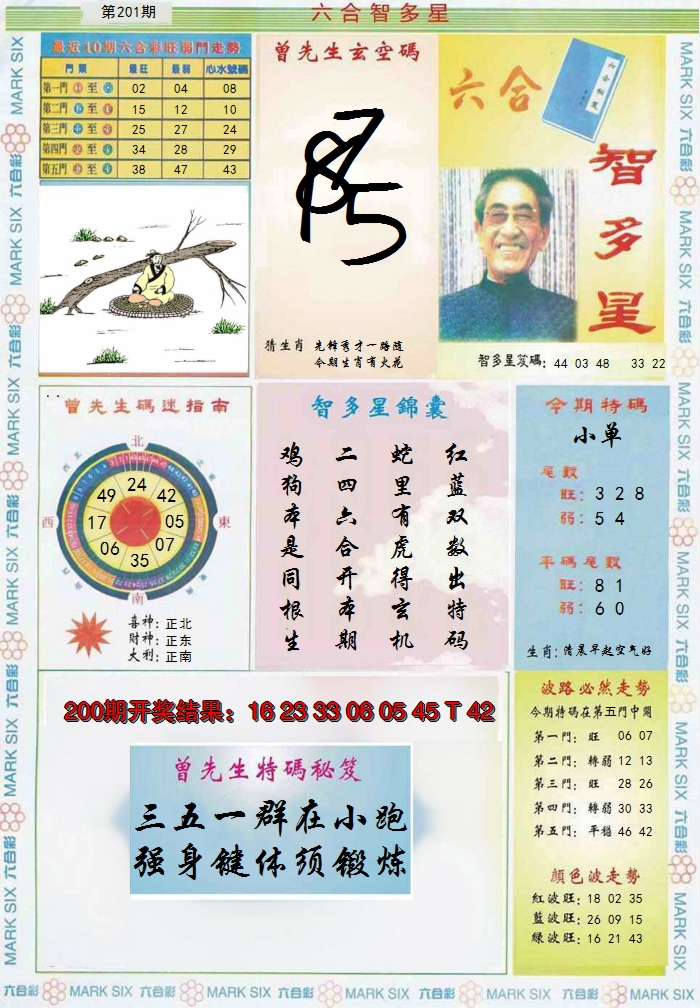 第201期
六合智多星
最近10期六合彩旺弱門走勢
門類 最旺 最弱 心水號碼
第一門 至 02 04 08
第二門 至 15 12 10
第三門 至 25 27 24
第四門 至 34 28 29
第五門 至 38 47 43
曾先生玄空碼
猜生肖 先锋秀才一路随
今期生肖有火花
六合
智多星
智多星笈碼：44 03 48 33 22
曾先生碼迷指南
北
東
南
西
24
42
05
07
35
06
17
49
喜神：正北
財神：正东
大利：正南
智多星錦囊
红蓝双数出特码
蛇里有虎得玄机
二四六合开本期
鸡狗本是同根生
今期特碼
小单
尾数
旺：3 2 8
弱：5 4
平碼尾数
旺：8 1
弱：6 0
生肖：清晨早起空气好
200期开奖结果：16 23 33 06 05 45 T 42
曾先生特碼秘笈
三五一群在小跑
强身键体须锻炼
波路必然走勢
今期特碼在第五門中開
第一門：旺 06 07
第二門：轉弱 12 13
第三門：旺 28 26
第四門：轉弱 30 33
第五門：平穩 46 42
顔色波走勢
紅波旺：18 02 35
藍波旺：26 09 15
緑波旺：16 21 43
MARK SIX 六合彩